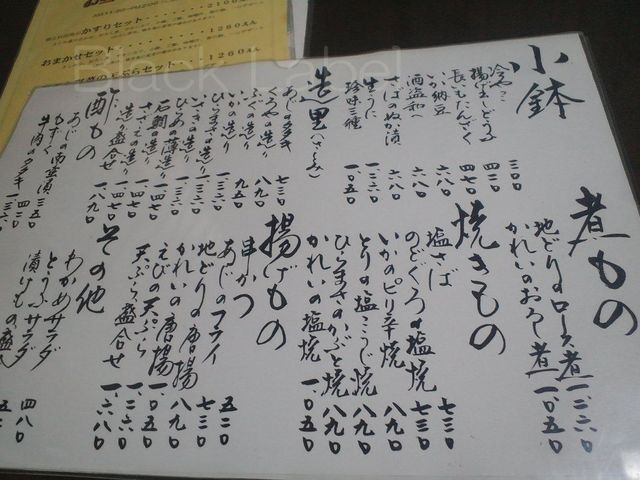 おまかせセット
１２６０えん
Black Label
小鉢
冷やっこ 三〇〇
揚げ出しどうふ 四二〇
長いもたんざく 四七〇
いか納豆 六八〇
酒盗和へ 六八〇
さばのぬか漬 六八〇
生うに 一、二六〇
珍味三種 一、〇五〇
造里（さしみ）
あじのタタキ 七三〇
くろやの造り 八九〇
ふぐの造り 九五〇
いかの造り
ひらまさの造り
いさきの造り
ひらめの薄造り
石鯛の造り
さざえの造り 一、四七〇
造り盛合せ 一、八九〇
酢もの
あじの南蛮漬 三五〇
もずく
牛肉のタタキ 一、三六〇
煮もの
地どりのロース煮 一、二六〇
かれいのおろし煮 一、〇五〇
焼きもの
塩さば 七三〇
のどくろの塩焼 七三〇
いかのピリ辛焼 八九〇
とりの塩こうじ焼 八九〇
ひらまさのかぶと焼 八九〇
かれいの塩焼 一、〇五〇
揚げもの
串かつ 五二〇
あじのフライ 七三〇
地どりの唐揚 八九〇
かれいの唐揚 一、〇五〇
えびの天ぷら 一、二六〇
天ぷら盛合せ 一、六八〇
その他
わかめサラダ 四八〇
とうふサラダ
漬けもの盛